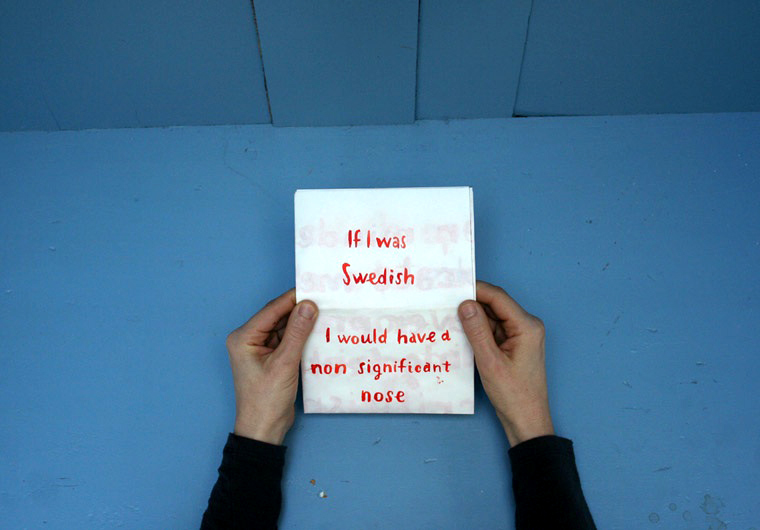 If I was
Swedish
I would have a
non significant
nose